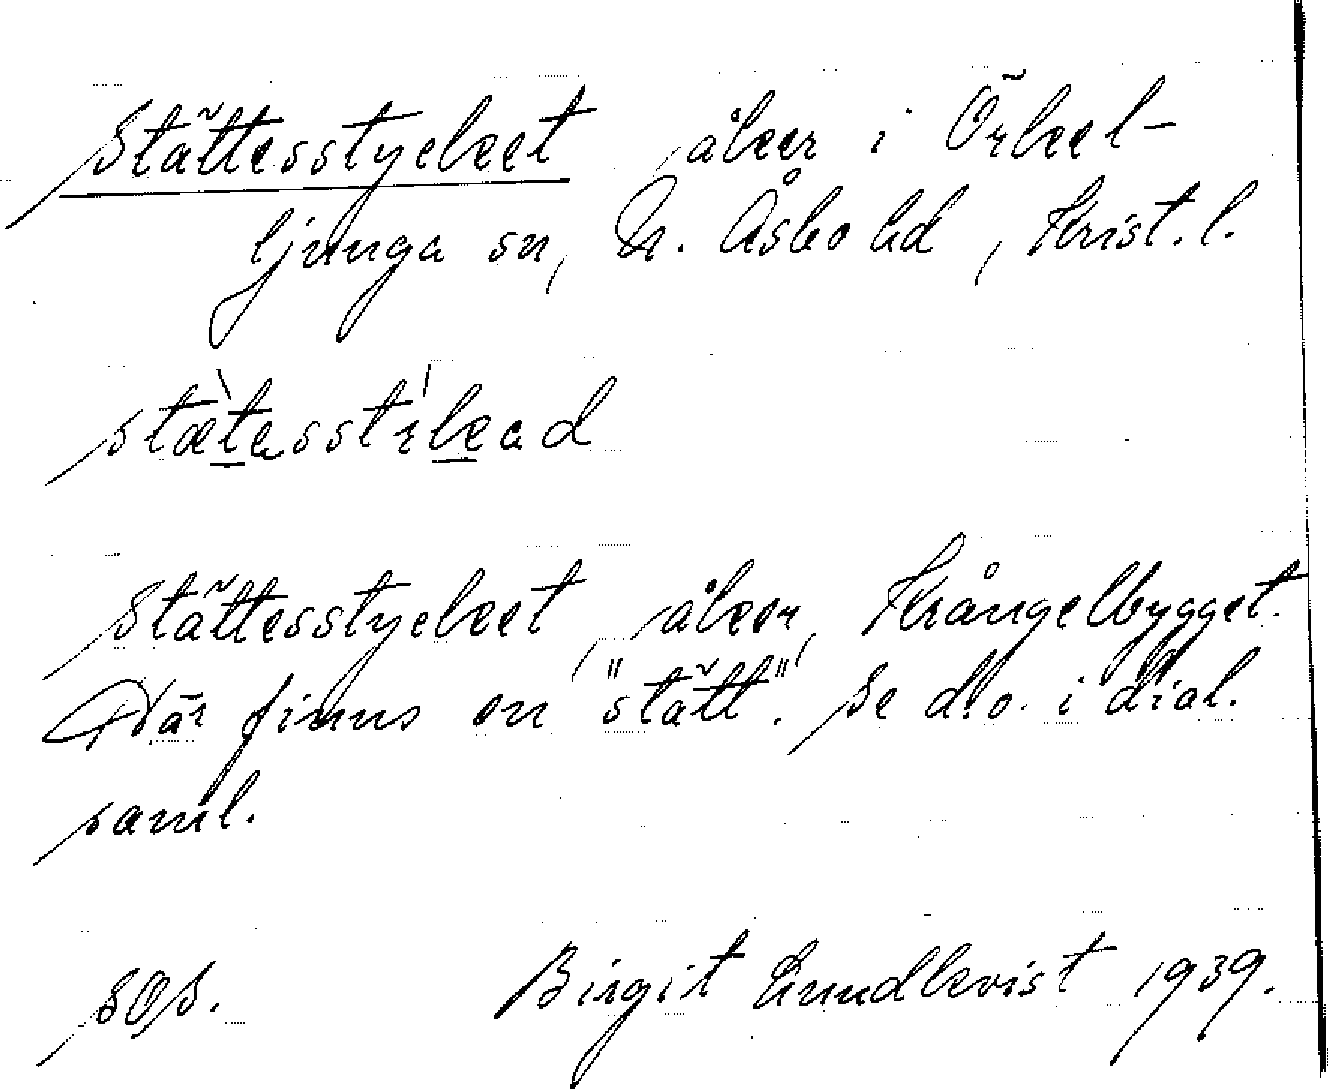 Stättesstycket, åker i Örkel-
ljunga sn, N. Åsbo hd, Krist. l.
stætesstikead
Stättesstycket, åker, Krångelbygget.
Där finns en "stätt". Se d.o. i dial.
saml.
SOS. Birgit Lundkvist 1939.